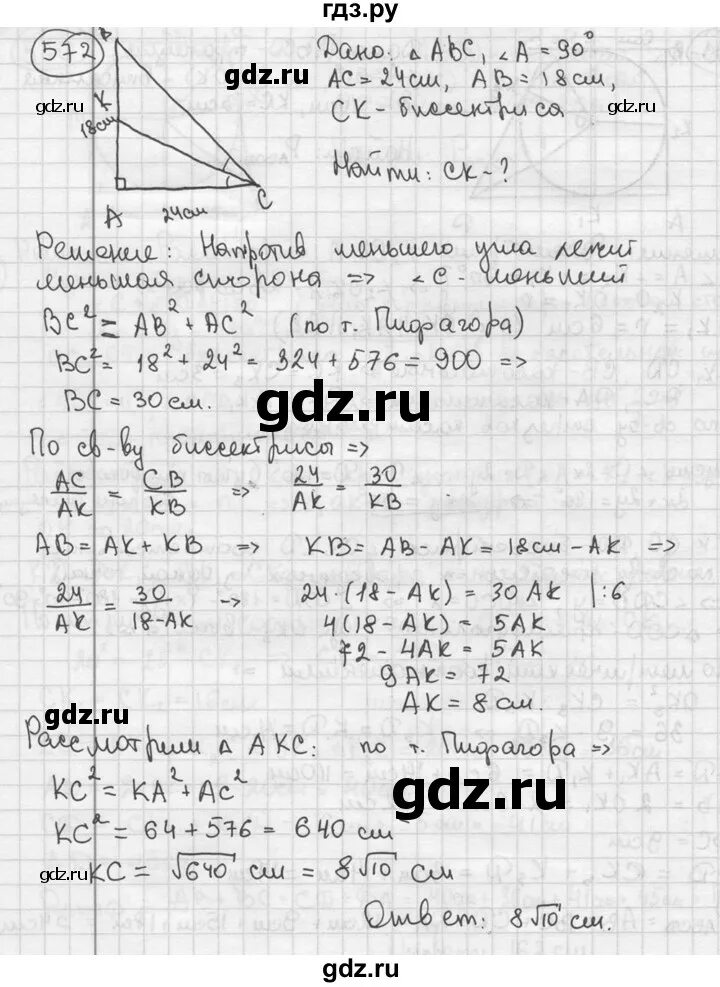 гдз.ру
572
Дано: △ ABC, ∠A = 90°
gdz.ru
AC = 24 см, AB = 18 см,
gdz.ru
K
CK - биссектриса
18 см
Найти: CK - ?
A
24 см
C
Решение: Напротив меньшего угла лежит
меньшая сторона => ∠C - меньший
BC² = AB² + AC² (по т. Пифагора)
BC² = 18² + 24² = 324 + 576 = 900 =>
BC = 30 см.
gdz.ru
gdz.ru
По св-ву биссектрисы =>
AC/AK = CB/KB => 24/AK = 30/KB
AB = AK + KB => KB = AB - AK = 18 см - AK =>
gdz.ru
24/AK = 30/18-AK -> 24·(18 - AK) = 30 AK |:6
4(18 - AK) = 5AK
72 - 4AK = 5AK
9AK = 72
AK = 8 см.
gdz.ru
Рассмотрим △ AKC: по т. Пифагора =>
KC² = KA² + AC²
gdz.ru
KC² = 64 + 576 = 640 см
gdz.ru
KC = √640 см = 8√10 см
gdz.ru
Ответ: 8√10 см.
gdz.ru